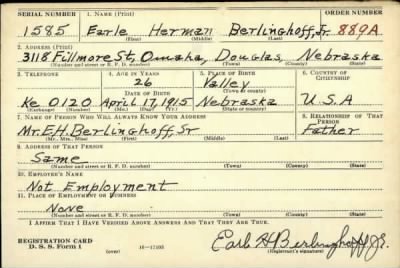 SERIAL NUMBER 1. NAME (Print) ORDER NUMBER
1585 Earle Herman Berlinghoff, Jr. 889A
(First) (Middle) (Last)
2. ADDRESS (Print)
3118 Fillmore St, Omaha, Douglas, Nebraska
(Number and street or R. F. D. number) (Town) (County) (State)
3. TELEPHONE 4. AGE IN YEARS 5. PLACE OF BIRTH 6. COUNTRY OF CITIZENSHIP
26 Valley
DATE OF BIRTH (Town or county)
Ke 0120 April 17, 1915 Nebraska U.S.A
(Exchange) (Number) (Mo.) (Day) (Yr.) (State or country)
7. NAME OF PERSON WHO WILL ALWAYS KNOW YOUR ADDRESS 8. RELATIONSHIP OF THAT PERSON
Mr. E.H. Berlinghoff, Sr Father
(Mr., Mrs., Miss) (First) (Middle) (Last)
9. ADDRESS OF THAT PERSON
Same
(Number and street or R. F. D. number) (Town) (County) (State)
10. EMPLOYER'S NAME
Not Employment
11. PLACE OF EMPLOYMENT OR BUSINESS
None
(Number and street or R. F. D. number) (Town) (County) (State)
I AFFIRM THAT I HAVE VERIFIED ABOVE ANSWERS AND THAT THEY ARE TRUE.
REGISTRATION CARD
D. S. S. Form 1 (over) 16—17105
Earle H Berlinghoff Jr.
(Registrant's signature)